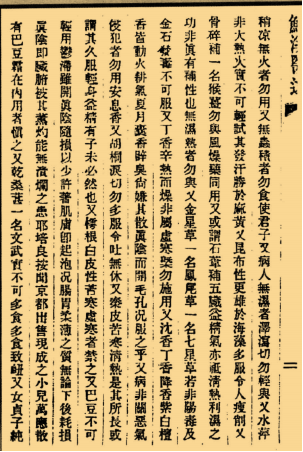 稍凉無火者勿用又無蟲積者勿食使君子又病人無濕者澤瀉切勿輕與又水萍
非大熱火實不可輕試其發汗勝於麻黃又昆布性更雄於海藻多服令人瘦削又
骨碎補一名猴薑勿與風燥藥同用又或謂石葦補五臟益精氣亦祗清熱利濕之
功非眞有補性也無濕熱者勿與又金星草一名鳳尾草一名七星草若非陽毒及
金石發毒不可服又丁香辛熱而燥非屬虛寒槩勿施用又沈香丁香降香紫白檀
香皆動火耗氣夏月囊香辟臭尚嫌其散眞陰而開毛孔况服之乎又病非關惡氣
侵犯者勿用安息香又胡桐淚切勿多服令吐無休又欒皮苦寒清熱是其所長或
謂其久服輕身益精有子未必然也又樗根白皮性苦寒虛寒者禁之又巴豆不可
輕用鬱滯雖開眞陰隨損以少許著肌膚卽起泡况腸胃柔薄之質無論下後耗損
眞陰卽臟腑被其薰灼能無潰爛之患耶培良按閩京都出售現成之小兒萬應散
有巴豆霜在內用者愼之又乾桑葚一名文武實不可多食多食致衄又女貞子純